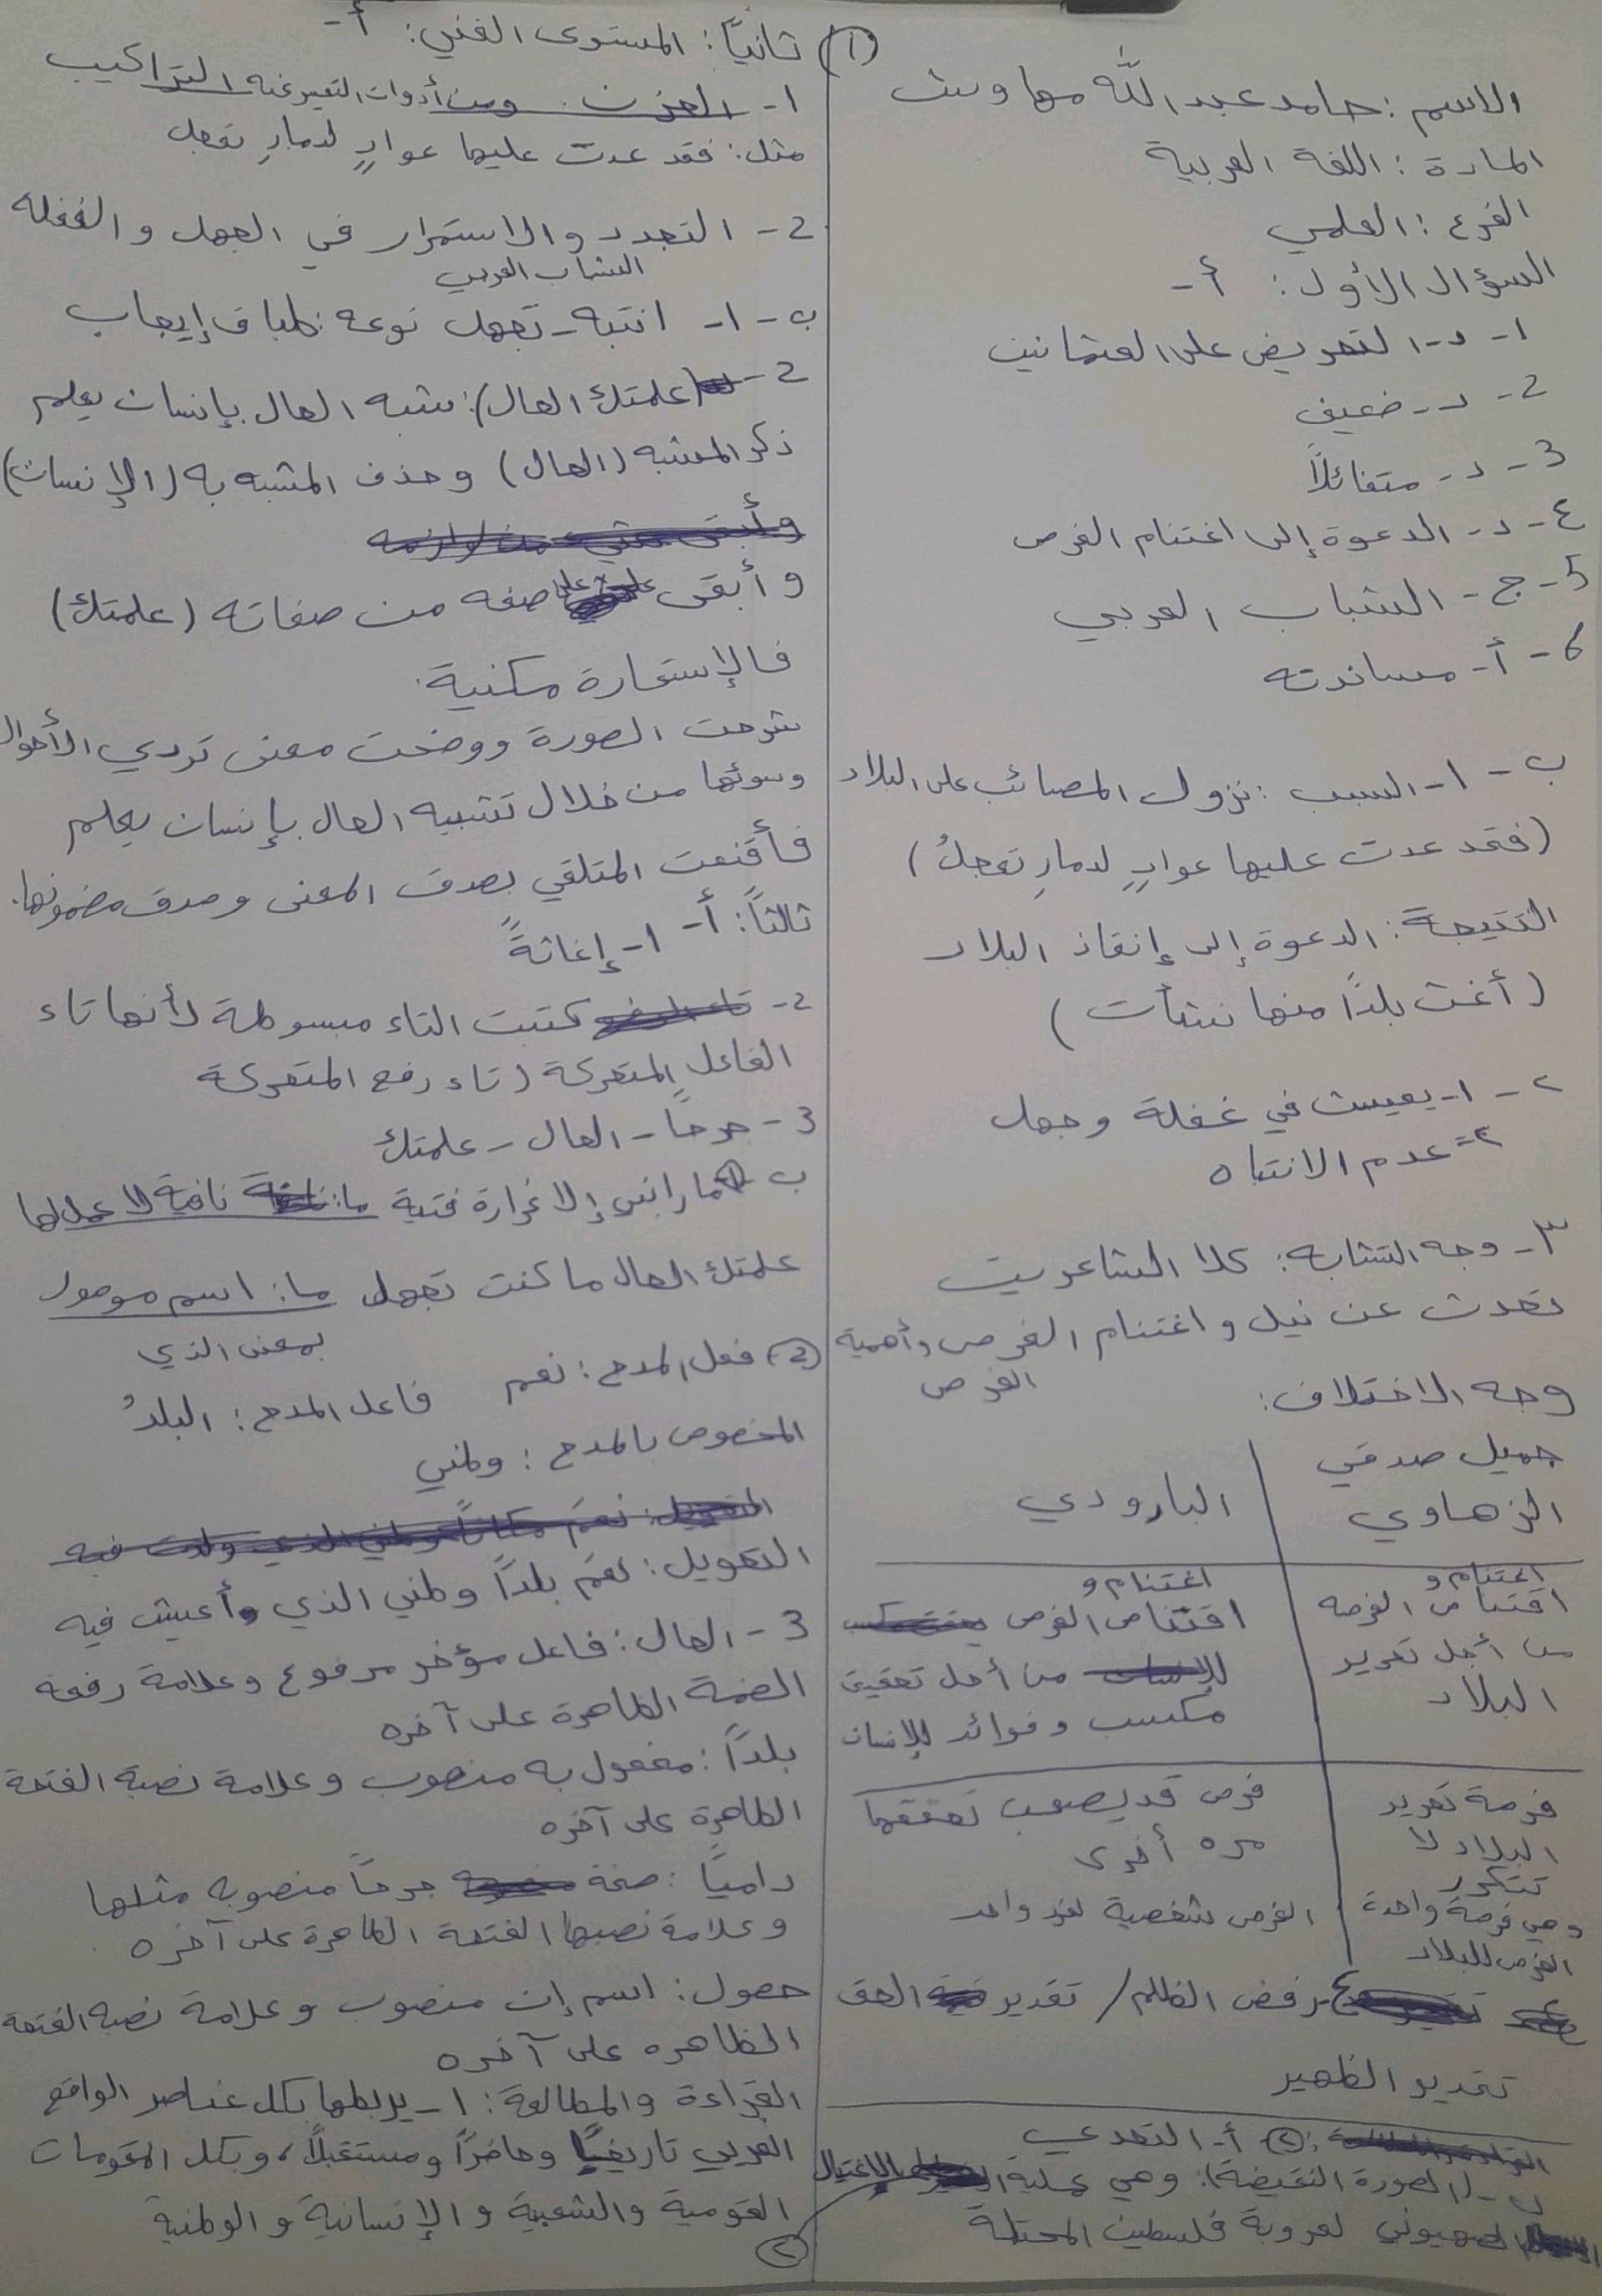 الاسم : حامد عبد الله مهاوش
المادة : اللغة العربية
الفرع : العلمي
السؤال الأول : أ-
1- د- التحريض على العثمانيين
2- د- ضعيف
3- د- متفائلاً
4- د- الدعوة إلى اغتنام الفرص
5- ج- الشباب العربي
6- أ- مساندته
ب - 1- السبب : نزول المصائب على البلاد
(فقد عدت عليها عوادٍ لدمارِ تعجلُ)
النتيجة : الدعوة إلى إنقاذ البلاد
(أغث بلداً منها نشأت)
٢- 1- يعيش في غفلة وجهل
٢- عدم الانتباه
٣- وجه التشابه : كلا الشاعرين
تحدث عن نيل و اغتنام الفرص وأهمية
الفرص
وجه الاختلاف :
جميل صدقي الزهاوي
البارودي
اغتنام و
اقتناص الفرصه
من أجل تحرير
البلاد
اغتنام و
اقتناص الفرص
من أجل تحقيق
مكسب و فوائد للإنسان
فرصة تحرير
البلاد لا
تتكرر
وهي فرصة واحدة
الفرص للبلاد
فرص قد يصعب تحققها
مره أخرى
الفرص شخصية لفرد واحد
٤- رفض الظلم / تقدير الحق
تقدير الظهير
(2) أ- التحدي
ب- (الصورة النقيضة): وهي عملية الإغتيال
الصهيوني لعروبة فلسطين المحتلة
(1) ثانياً : المستوى الفني : أ-
1- الحزن ومن أدوات التعبير عنه التراكيب
مثل : فقد عدت عليها عوادٍ لدمارِ تعجل
2- التجدد والاستمرار في الجهل و الغفله
الشباب العربي
ب - 1- انتبه - تجهل نوعه : طباق إيجاب
2- (علمتك الحال): شبه الحال بإنسان يعلم
ذكر المشبه (الحال) وحذف المشبه به (الإنسان)
وأبقى شيء من لوازمه
و أبقى على صفه من صفاته (علمتك)
فالإستعارة مكنية.
شرحت الصورة ووضحت معنى تردي الأحوال
وسوئها من خلال تشبيه الحال بإنسان يعلم
فأقنعت المتلقي بصدق المعنى وصدق مضمونها.
ثالثاً : أ- 1- إغاثةً
2- كتبت التاء مبسوطة لأنها تاء
الفاعل المتحركة (تاء رفع المتحركة
3- جرحاً - الحال - علمتك
ب (1) ما رابني إلا غرارة فتية ما: نافية لا عمل لها
علمتك الحال ما كنت تجهل ما: اسم موصول
بمعنى الذي
(2) فعل المدح : نعم فاعل المدح : البلدُ
المخصوص بالمدح : وطني
التحويل : نعمَ مكاناً وطني الذي ولدت فيه
التحويل : نعمَ بلداً وطني الذي أعيش فيه
3- الحال : فاعل مؤخر مرفوع وعلامة رفعه
الضمة الظاهرة على آخره
بلداً : مفعول به منصوب وعلامة نصبه الفتحة
الظاهرة على آخره
دامياً : صفة جرحاً منصوبه مثلها
وعلامة نصبها الفتحة الظاهرة على آخره
حصول : اسم إن منصوب وعلامة نصبه الفتحة
الظاهره على آخره
القراءة والمطالعة : 1- يربطها بكل عناصر الواقع
العربي تاريخياً وحاضراً ومستقبلاً، وبكل المقومات
القومية والشعبية والإنسانية والوطنية
(2)